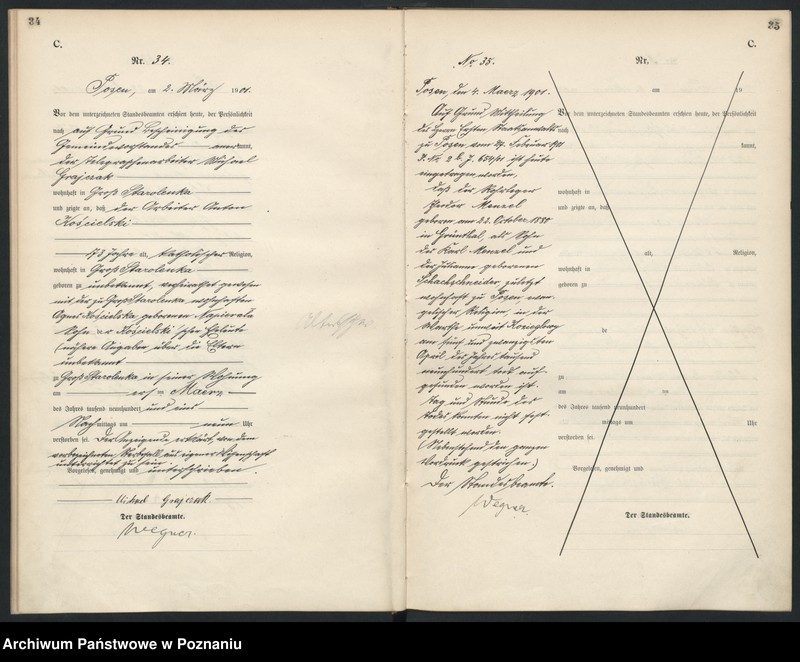 34
C.
Nr. 34.
Posen, am 2. März 1901.
Vor dem unterzeichneten Standesbeamten erschien heute, der Persönlichkeit
nach auf Grund Bescheinigung des
Gemeindevorstandes anerkannt,
der Telegraphenarbeiter Michael
Grajczak
wohnhaft in Groß Starolenka
und zeigte an, daß der Arbeiter Anton
Kościelski
73 Jahre alt, katholischer Religion,
wohnhaft in Groß Starolenka
geboren zu unbekannt, verheirathet gewesen
mit der zu Groß Starolenka wohnhaften
Agnes Kościelska geborenen Napierala
Sohn der Kościelski'schen Eheleute
(nähere Angaben über die Eltern
unbekannt
zu Groß Starolenka in seiner Wohnung
am ersten Maerz
des Jahres tausend neunhundert und eins
Nachmittags um neun Uhr
verstorben sei. Der Anzeigende erklärt, von dem
vorbezeichneten Sterbefall aus eigener Wissenschaft
unterrichtet zu sein.
Vorgelesen, genehmigt und unterschrieben.
Michael Grajczak.
Der Standesbeamte.
Wegner.
35
C.
No 35.
Posen, den 4. Maerz 1901.
Auf Grund Mittheilung
des Herrn Ersten Staatsanwalts
zu Posen vom 27. Februar 1901
ist heute
eingetragen worden,
daß der Rohrleger
Menzel
geboren am 22. October 1880
in Grünthal, als Sohn
des Karl Menzel und
der Juliane geborenen
Schachschneider zuletzt
wohnhaft zu Posen evan-
gelischer Religion, in der
Warthe unweit
am fünf und zwanzigsten
April des Jahres tausend
neunhundert todt auf-
gefunden worden ist.
Tag und Stunde des
Todes konnten nicht fest-
gestellt werden.
(Nebenstehend den ganzen
Vordruck gestrichen.)
Der Standesbeamte.
Wegner.
Nr.
am 19
Vor dem unterzeichneten Standesbeamten erschien heute, der Persönlichkeit
nach
kannt,
wohnhaft in
und zeigte an, daß
alt, Religion,
wohnhaft in
geboren zu
de
zu
am ten
des Jahres tausend neunhundert
mittags um Uhr
verstorben sei.
Vorgelesen, genehmigt und
Der Standesbeamte.
Archiwum Państwowe w Poznaniu